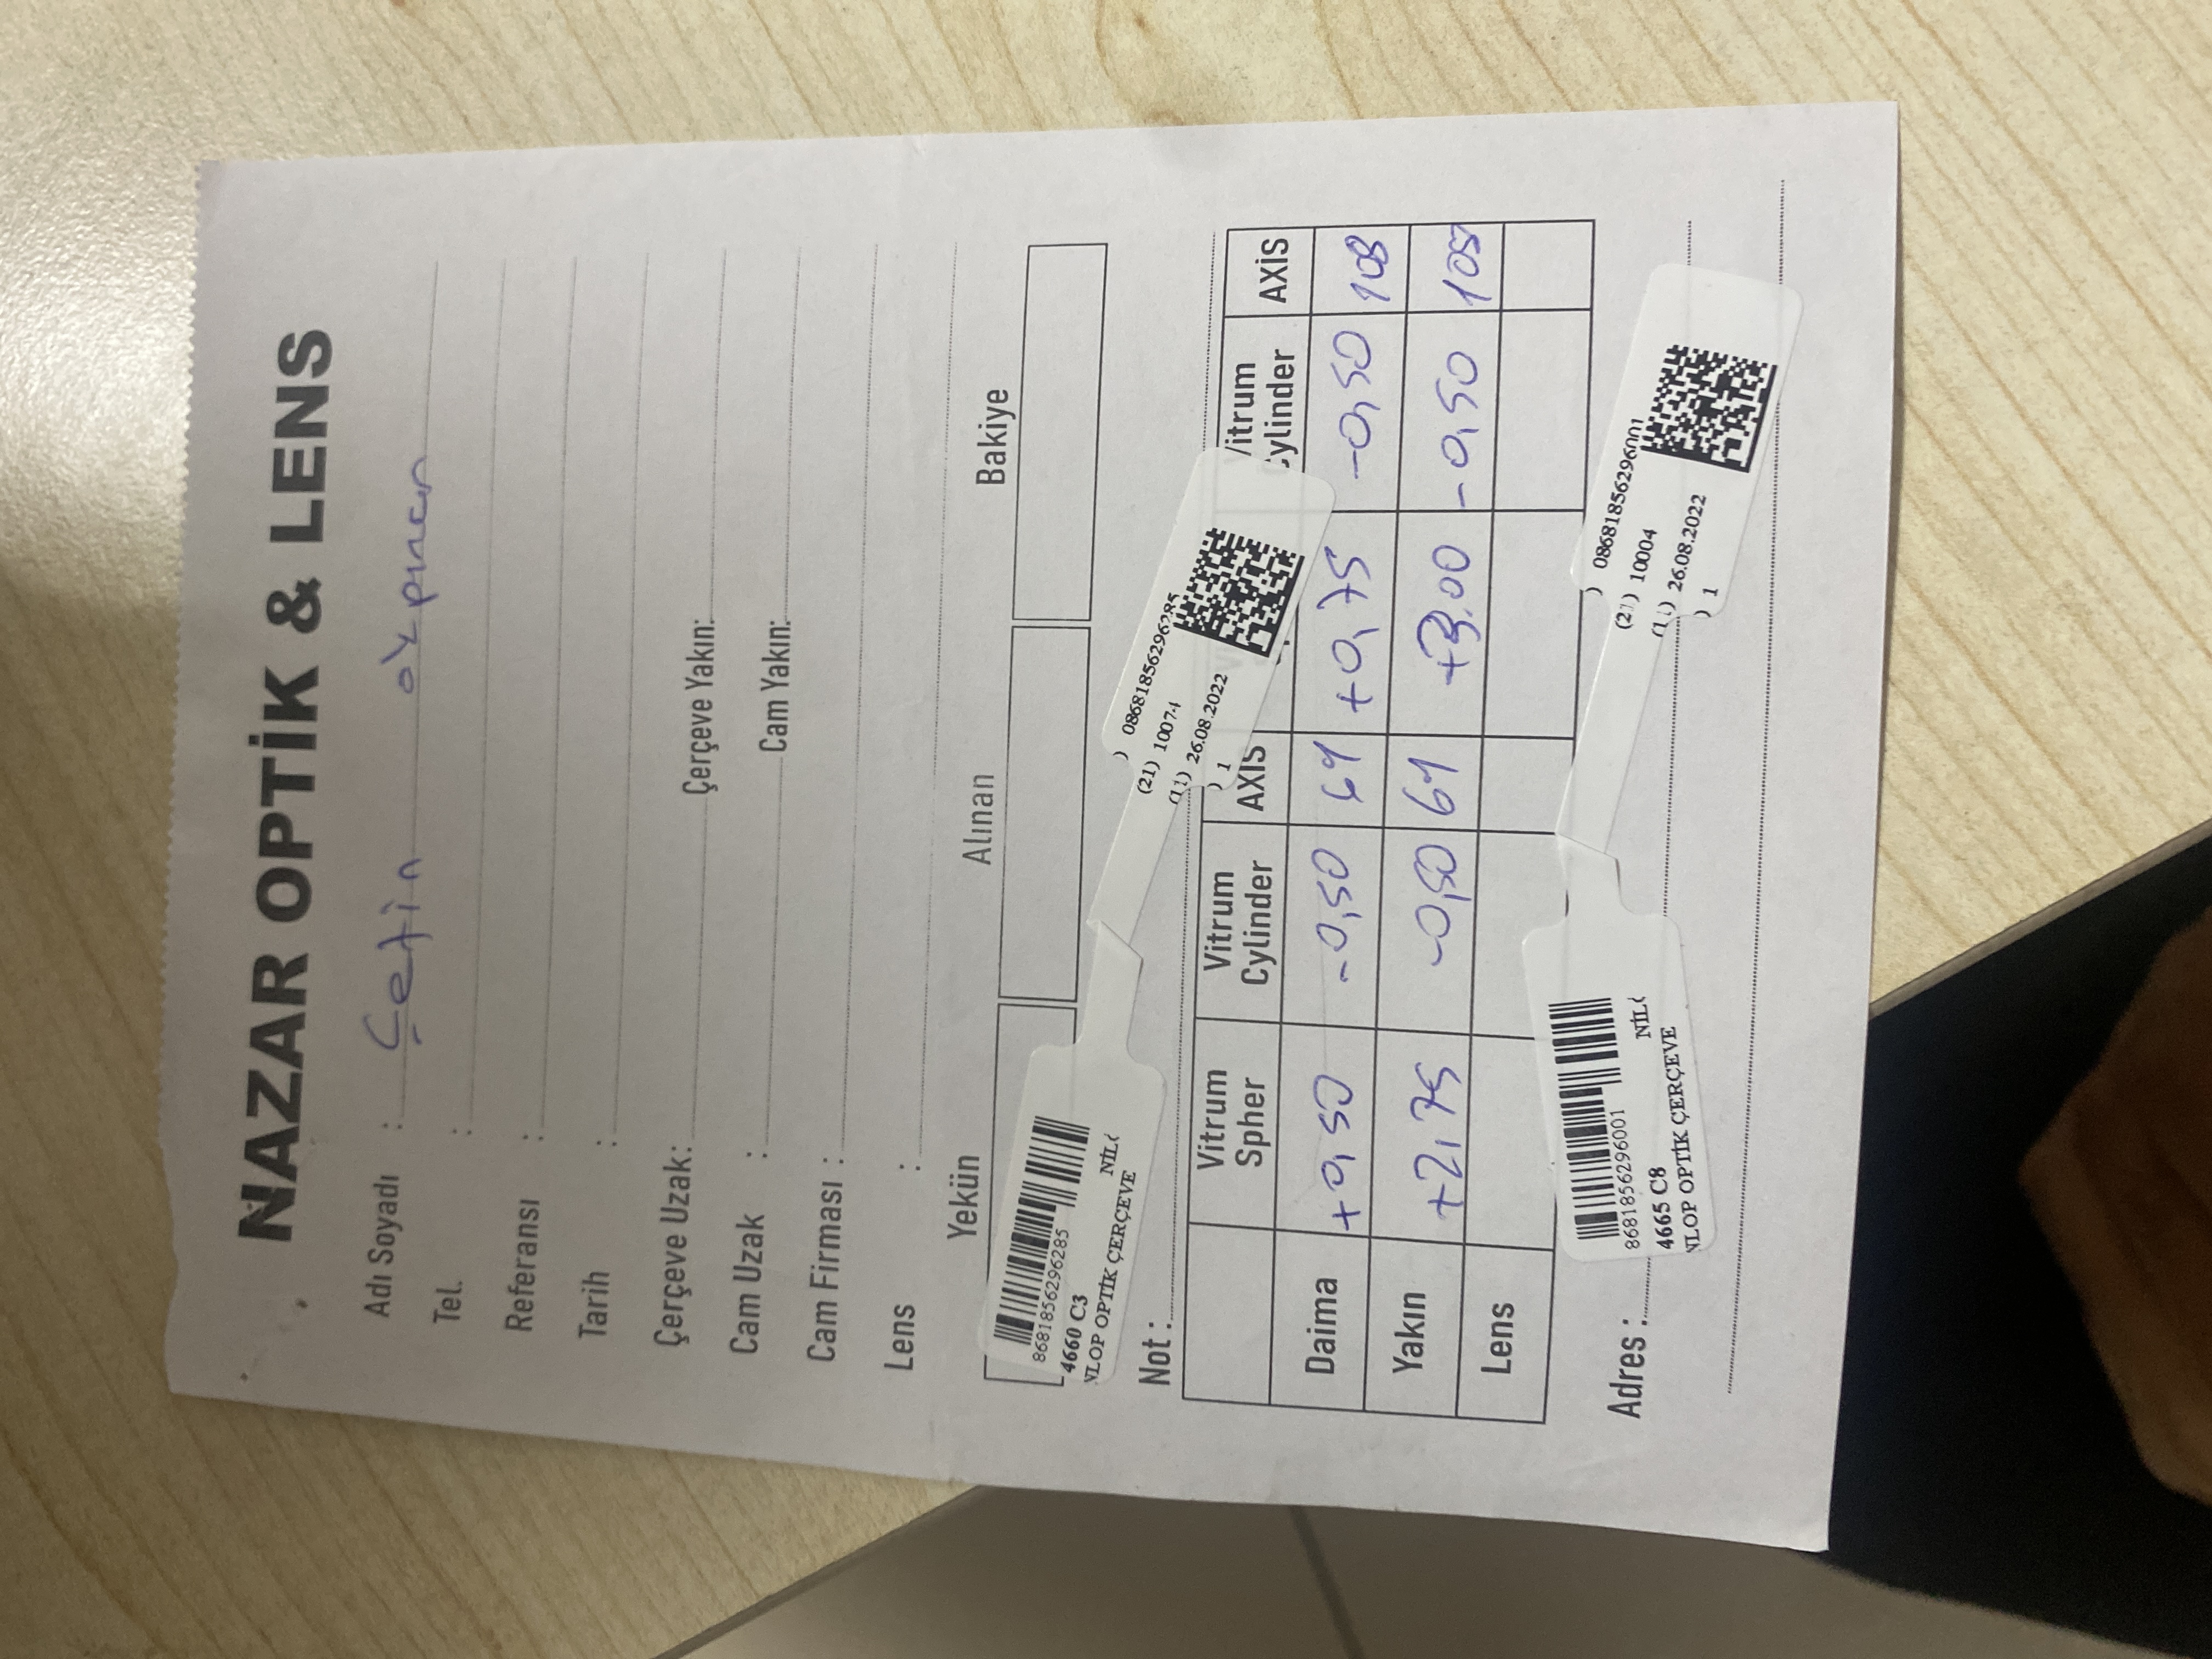 NAZAR OPTİK & LENS
Adı Soyadı : Çetin akpınar
Tel. :
Referansı :
Tarih :
Çerçeve Uzak: Çerçeve Yakın:
Cam Uzak : Cam Yakın:
Cam Firması :
Lens :
Yekün Alınan Bakiye
8681856296285
4660 C3 NİL
NLOP OPTİK ÇERÇEVE
) 08681856296285
(21) 10074
(11) 26.08.2022
) 1
Not :
Vitrum Spher Vitrum Cylinder AXİS Vitrum Cylinder AXİS
Daima +0,50 -0,50 61 +0,75 -0,50 108
Yakın +2,75 -0,50 61 +3.00 -0,50 108
Lens
8681856296001
4665 C8 NİL
NLOP OPTİK ÇERÇEVE
) 08681856296001
(21) 10004
(11) 26.08.2022
) 1
Adres :